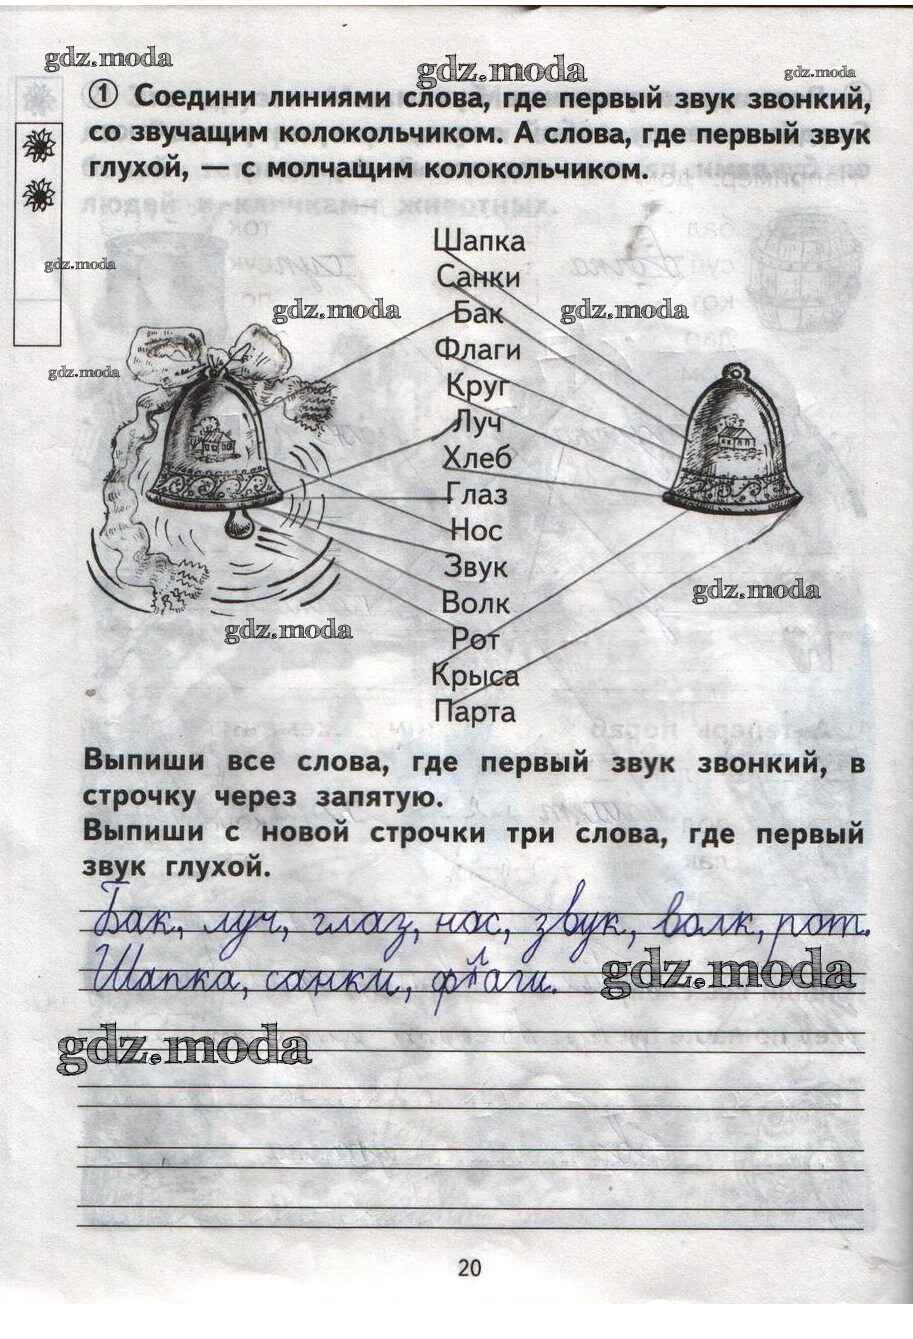 gdz.moda
gdz.moda
gdz.moda
1 Соедини линиями слова, где первый звук звонкий,
со звучащим колокольчиком. А слова, где первый звук
глухой, — с молчащим колокольчиком.
gdz.moda
Шапка
Санки
gdz.moda
Бак
gdz.moda
Флаги
gdz.moda
Круг
Луч
Хлеб
Глаз
Нос
Звук
gdz.moda
Волк
gdz.moda
Рот
Крыса
Парта
Выпиши все слова, где первый звук звонкий, в
строчку через запятую.
Выпиши с новой строчки три слова, где первый
звук глухой.
Бак, луч, глаз, нос, звук, волк, рот.
Шапка, санки, флаги.
gdz.moda
gdz.moda
20